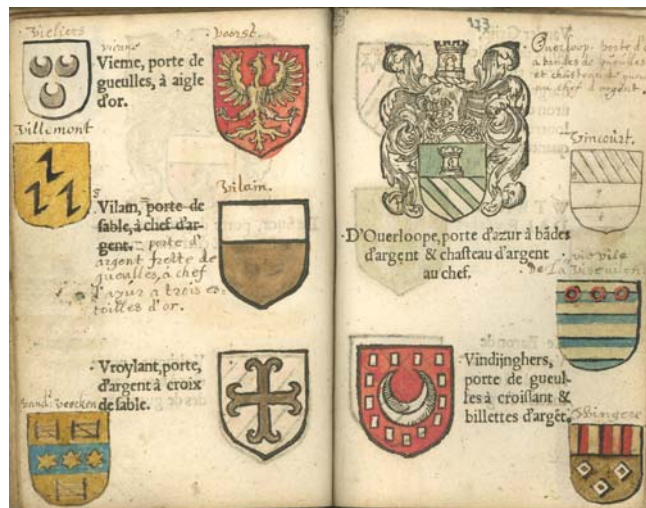 Vieliers
vienne
Vieme, porte de
gueulles, à aigle
d'or.
voorst.
Villemont
Vilain, porte de
sable, à chef d'ar-
gent. porte d'
argent frette de
gueulles, à chef
d'azur a trois es-
toilles d'or.
Vilain.
Vroylant, porte,
d'argent à croix
de sable.
Overloop. porte d'
a bendes de gueules
et chasteau de
au chef d'argent.
Vincourt.
D'Ouerloope, porte d'azur à bādes
d'argent & chasteau d'argent
au chef.
vievile
de La
Vindijnghers,
porte de gueul-
les à croissant &
billettes d'argēt.